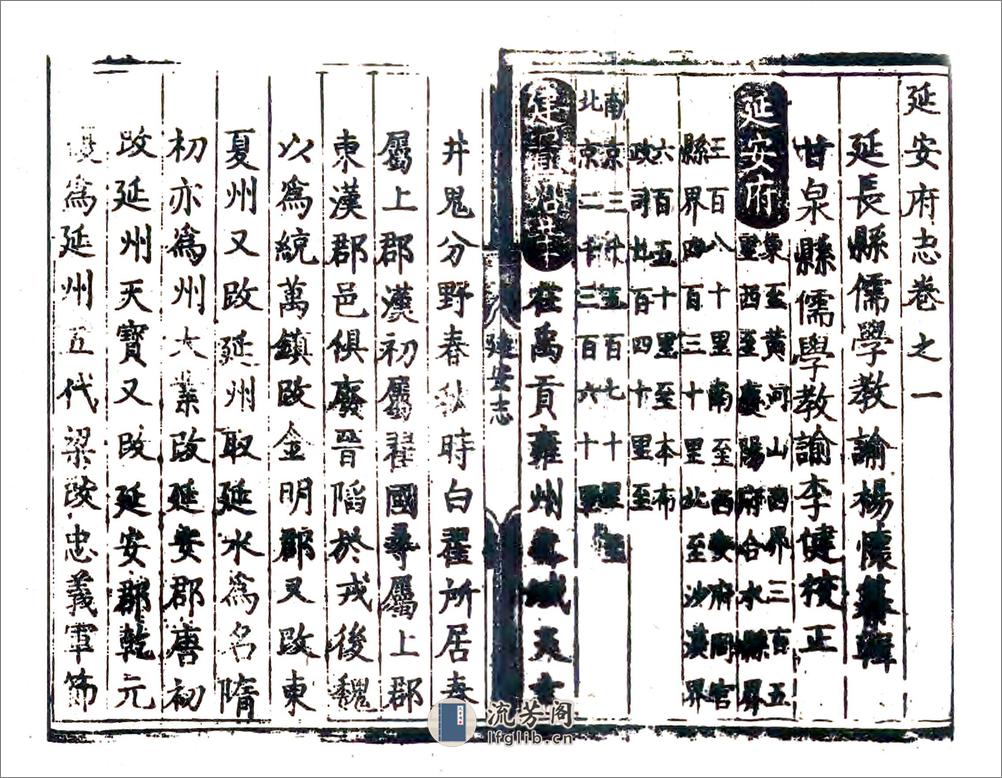 延安府志卷之一
延長縣儒學教諭楊懷纂輯
甘泉縣儒學教諭李健校正
延安府
東至黃河山西界三百五
十里西至慶陽府合水縣界
三百八十里南至西安府同官
縣界四百三十里北至沙漠界
六百五十里至本布
政司七百四十里至
南京三千五百七十里至
北京二千三百六十里
建置沿革
在禹貢雍州之域天文
井鬼分野春秋時白翟所居秦
屬上郡漢初屬翟國尋屬上郡
東漢郡邑俱廢晉陷於戎後魏
以爲統萬鎮改金明郡又改東
夏州又改延州取延水爲名隋
初亦爲州大業改延安郡唐初
改延州天寶又改延安郡乾元
復爲延州五代梁改忠義軍節
延安志
流芳阁
lfglib.cn